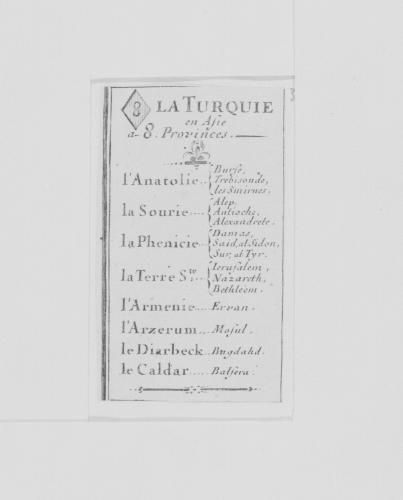 8 LA TURQUIE
3
en Asie
a 8. Provinces.
l'Anatolie.. Burse,
Trebisonde,
les Smirnes.
la Sourie.... Alep,
Antioche,
Alexandrete.
la Phenicie.. Damas,
Said, al Sidon,
Sur, al Tyr.
la Terre Ste... Ierusalem,
Nazareth,
Bethleem.
l'Armenie... Ervan.
l'Arzerum... Mosul.
le Diarbeck.. Bagdahd.
le Caldar..... Balsera.